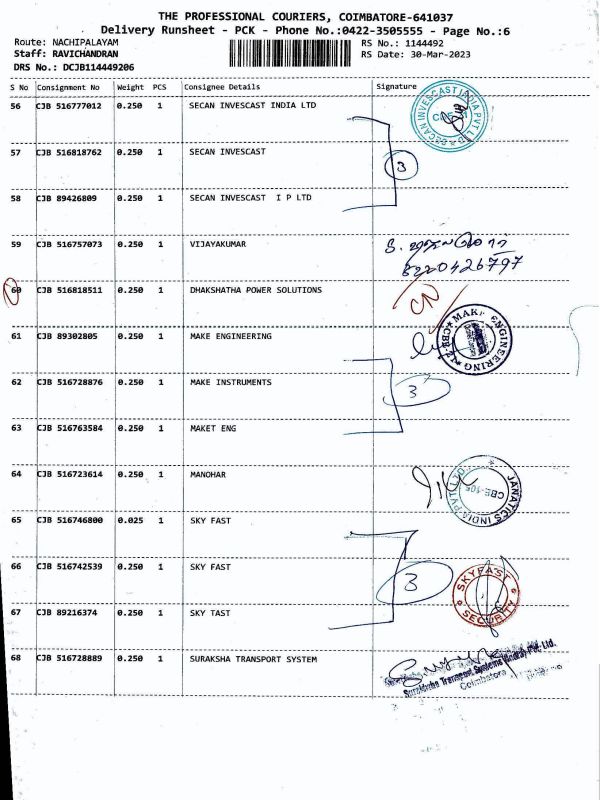 THE PROFESSIONAL COURIERS, COIMBATORE-641037
Delivery Runsheet - PCK - Phone No.:0422-3505555 - Page No.:6
Route: NACHIPALAYAM RS No.: 1144492
Staff: RAVICHANDRAN RS Date: 30-Mar-2023
DRS No.: DCJB114449206
S No Consignment No Weight PCS Consignee Details Signature
56 CJB 516777012 0.250 1 SECAN INVESCAST INDIA LTD
SECAN INVESCAST INDIA PVT LTD
57 CJB 516818762 0.250 1 SECAN INVESCAST
3
58 CJB 89426809 0.250 1 SECAN INVESCAST I P LTD
59 CJB 516757073 0.250 1 VIJAYAKUMAR
8220426797
60 CJB 516818511 0.250 1 DHAKSHATHA POWER SOLUTIONS
CN
61 CJB 89302805 0.250 1 MAKE ENGINEERING
MAKE ENGINEERING CBE-21
62 CJB 516728876 0.250 1 MAKE INSTRUMENTS
3
63 CJB 516763584 0.250 1 MAKET ENG
64 CJB 516723614 0.250 1 MANOHAR
JANATICS INDIA PVT LTD
65 CJB 516746800 0.025 1 SKY FAST
66 CJB 516742539 0.250 1 SKY FAST
3
SKYFAST SECURITY
67 CJB 89216374 0.250 1 SKY TAST
68 CJB 516728889 0.250 1 SURAKSHA TRANSPORT SYSTEM
Suraksha Transport Systems (India) Pvt. Ltd.
Coimbatore